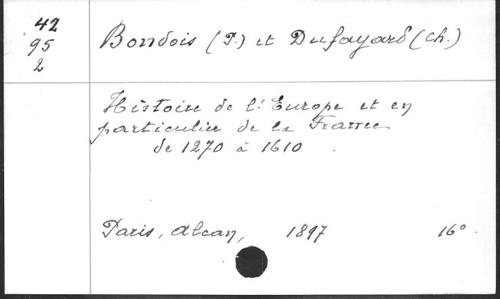 42
95
2
Bondois (P.) et Dufayard (Ch.)
Histoire de l'Europe et en
particulier de la France
de 1270 à 1610
Paris, Alcan, 1897 16°